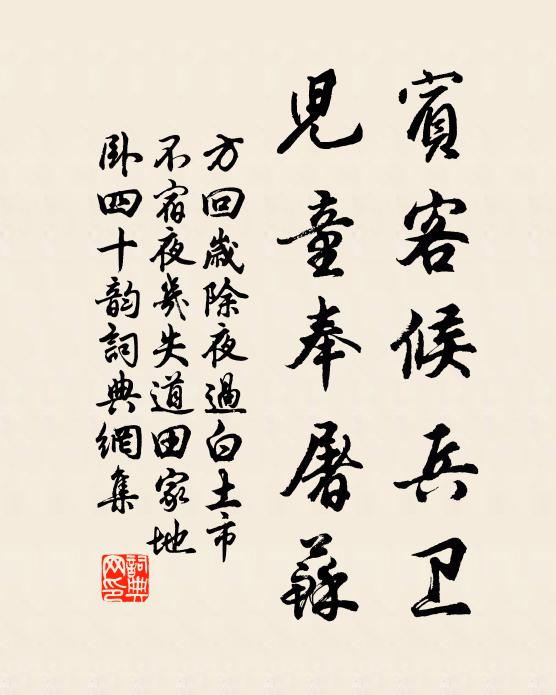 賓客候兵卫
兒童奉屠蘇
方回歲除夜過白土市
不宿夜幾失道田家地
卧四十韵詞典網集
詞典网印